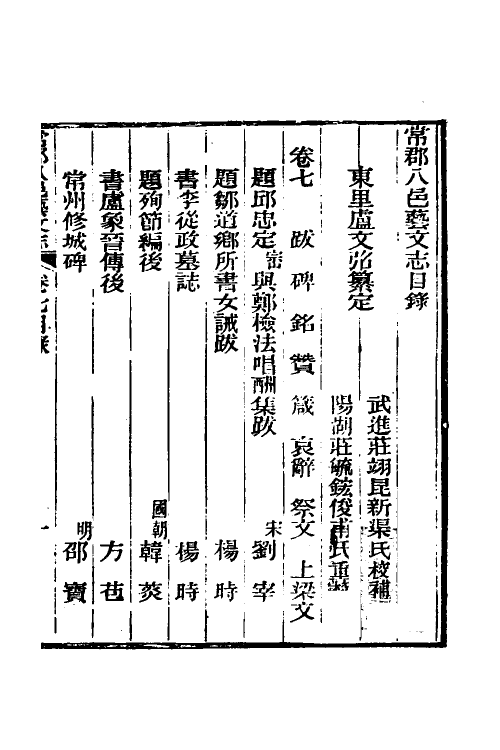 常郡八邑藝文志目錄
東里盧文弨纂定
武進莊翊昆新渠氏校補
陽湖莊毓鋐俊甫氏重
卷七 跋 碑 銘 贊 箴 哀辭 祭文 上梁文
題邱忠定密與鄭檢法唱酬集跋 宋 劉宰
題鄒道鄉所書女誡跋 楊時
書李從政墓誌 楊時
題殉節編後 國朝 韓菼
書盧象晉傳後 方苞
常州修城碑 明 邵寶
常郡八邑藝文志 卷七目錄 一